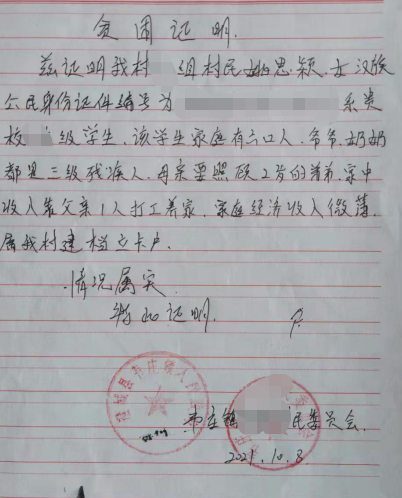 贫困证明.
兹证明我村 组村民 思颖.女汉族
公民身份证件编号为 系贵
校 级学生.该学生家庭有六口人.爷爷.奶奶
都是三级残疾人.母亲要照顾2岁的弟弟.家中
收入靠父亲1人打工养家.家庭经济收入微薄.
属我村建档立卡户.
情况属实
特此证明.
韦庄镇 民委员会.
2021.10.3